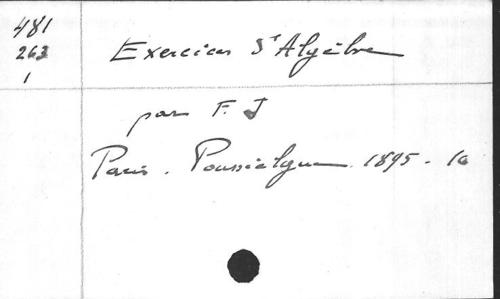 481
263
1
Exercices d'Algèbre
par F. J
Paris. Poussielgue 1895. 16